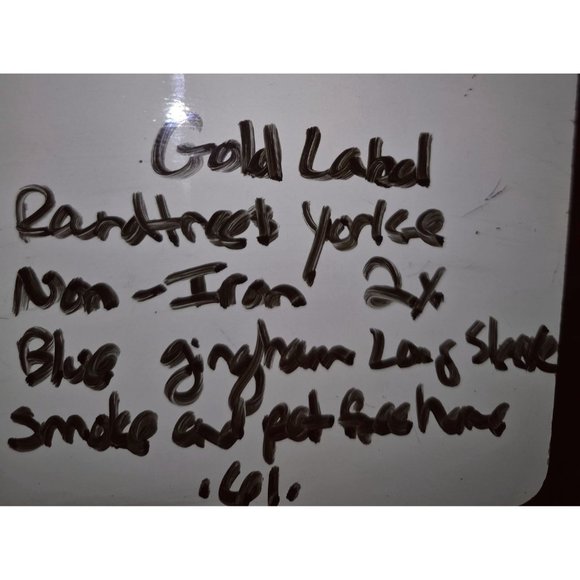 Gold Label
Roundtree & Yorke
Non-Iron 2x
Blue gingham Long Sleeve
Smoke and pet free home
.61.